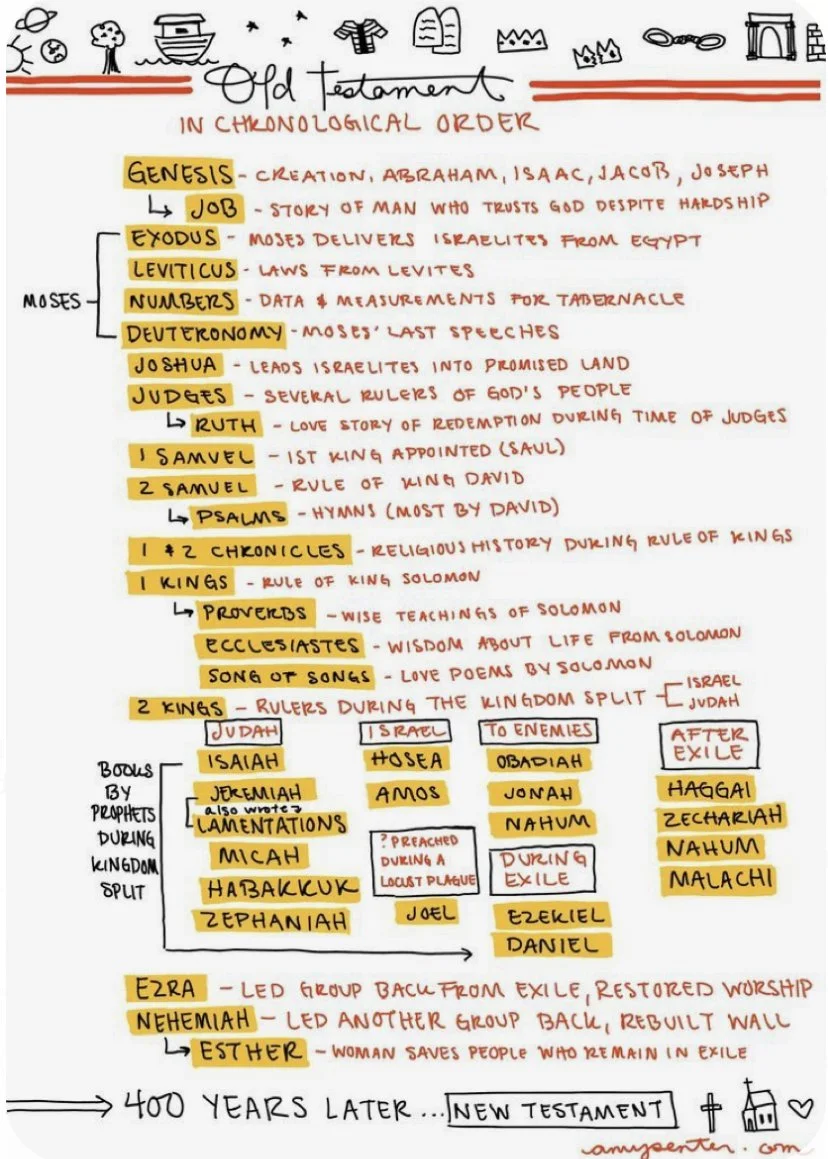 Old Testament
IN CHRONOLOGICAL ORDER
GENESIS - CREATION, ABRAHAM, ISAAC, JACOB, JOSEPH
JOB - STORY OF MAN WHO TRUSTS GOD DESPITE HARDSHIP
EXODUS - MOSES DELIVERS ISRAELITES FROM EGYPT
LEVITICUS - LAWS FROM LEVITES
MOSES
NUMBERS - DATA & MEASUREMENTS FOR TABERNACLE
DEUTERONOMY - MOSES' LAST SPEECHES
JOSHUA - LEADS ISRAELITES INTO PROMISED LAND
JUDGES - SEVERAL RULERS OF GOD'S PEOPLE
RUTH - LOVE STORY OF REDEMPTION DURING TIME OF JUDGES
1 SAMUEL - 1ST KING APPOINTED (SAUL)
2 SAMUEL - RULE OF KING DAVID
PSALMS - HYMNS (MOST BY DAVID)
1 & 2 CHRONICLES - RELIGIOUS HISTORY DURING RULE OF KINGS
1 KINGS - RULE OF KING SOLOMON
PROVERBS - WISE TEACHINGS OF SOLOMON
ECCLESIASTES - WISDOM ABOUT LIFE FROM SOLOMON
SONG OF SONGS - LOVE POEMS BY SOLOMON
2 KINGS - RULERS DURING THE KINGDOM SPLIT
ISRAEL
JUDAH
BOOKS
BY
PROPHETS
DURING
KINGDOM
SPLIT
JUDAH
ISAIAH
JEREMIAH
also wrote
LAMENTATIONS
MICAH
HABAKKUK
ZEPHANIAH
ISRAEL
HOSEA
AMOS
? PREACHED
DURING A
LOCUST PLAGUE
JOEL
TO ENEMIES
OBADIAH
JONAH
NAHUM
DURING
EXILE
EZEKIEL
DANIEL
AFTER
EXILE
HAGGAI
ZECHARIAH
NAHUM
MALACHI
EZRA - LED GROUP BACK FROM EXILE, RESTORED WORSHIP
NEHEMIAH - LED ANOTHER GROUP BACK, REBUILT WALL
ESTHER - WOMAN SAVES PEOPLE WHO REMAIN IN EXILE
400 YEARS LATER... NEW TESTAMENT
amypenter.com